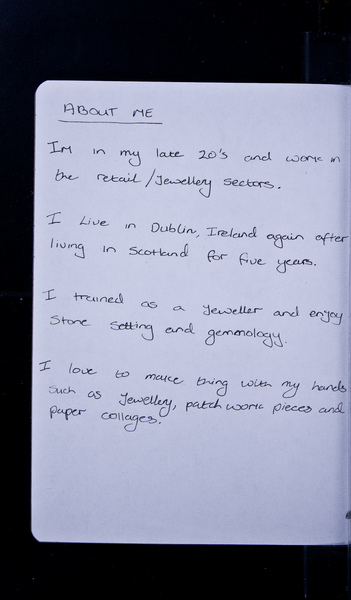 ABOUT ME
I'm in my late 20's and work in
the retail/Jewellery sectors.
I Live in Dublin, Ireland again after
living in Scotland for five years.
I trained as a Jeweller and enjoy
Stone Setting and gemmology.
I love to make thing with my hands
such as Jewellery, patchwork pieces and
paper collages.